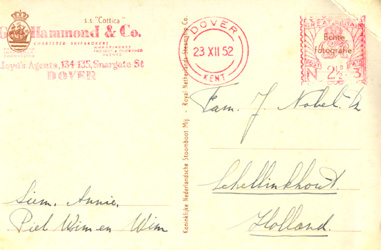 s.s. "Cottica"
Hammond & Co.
Lloyd's Agents, 134-135, Snargate St
DOVER
Koninklijke Nederlandsche Stoomboot Mij - Royal Netherlands Steamship Co.
DOVER
23 XII 52
KENT
Echte
fotografie
N 2½ 3
Fam. J. Nobel
Schellinkhout.
Holland.
Siem. Annie.
Piet Wim en Wim